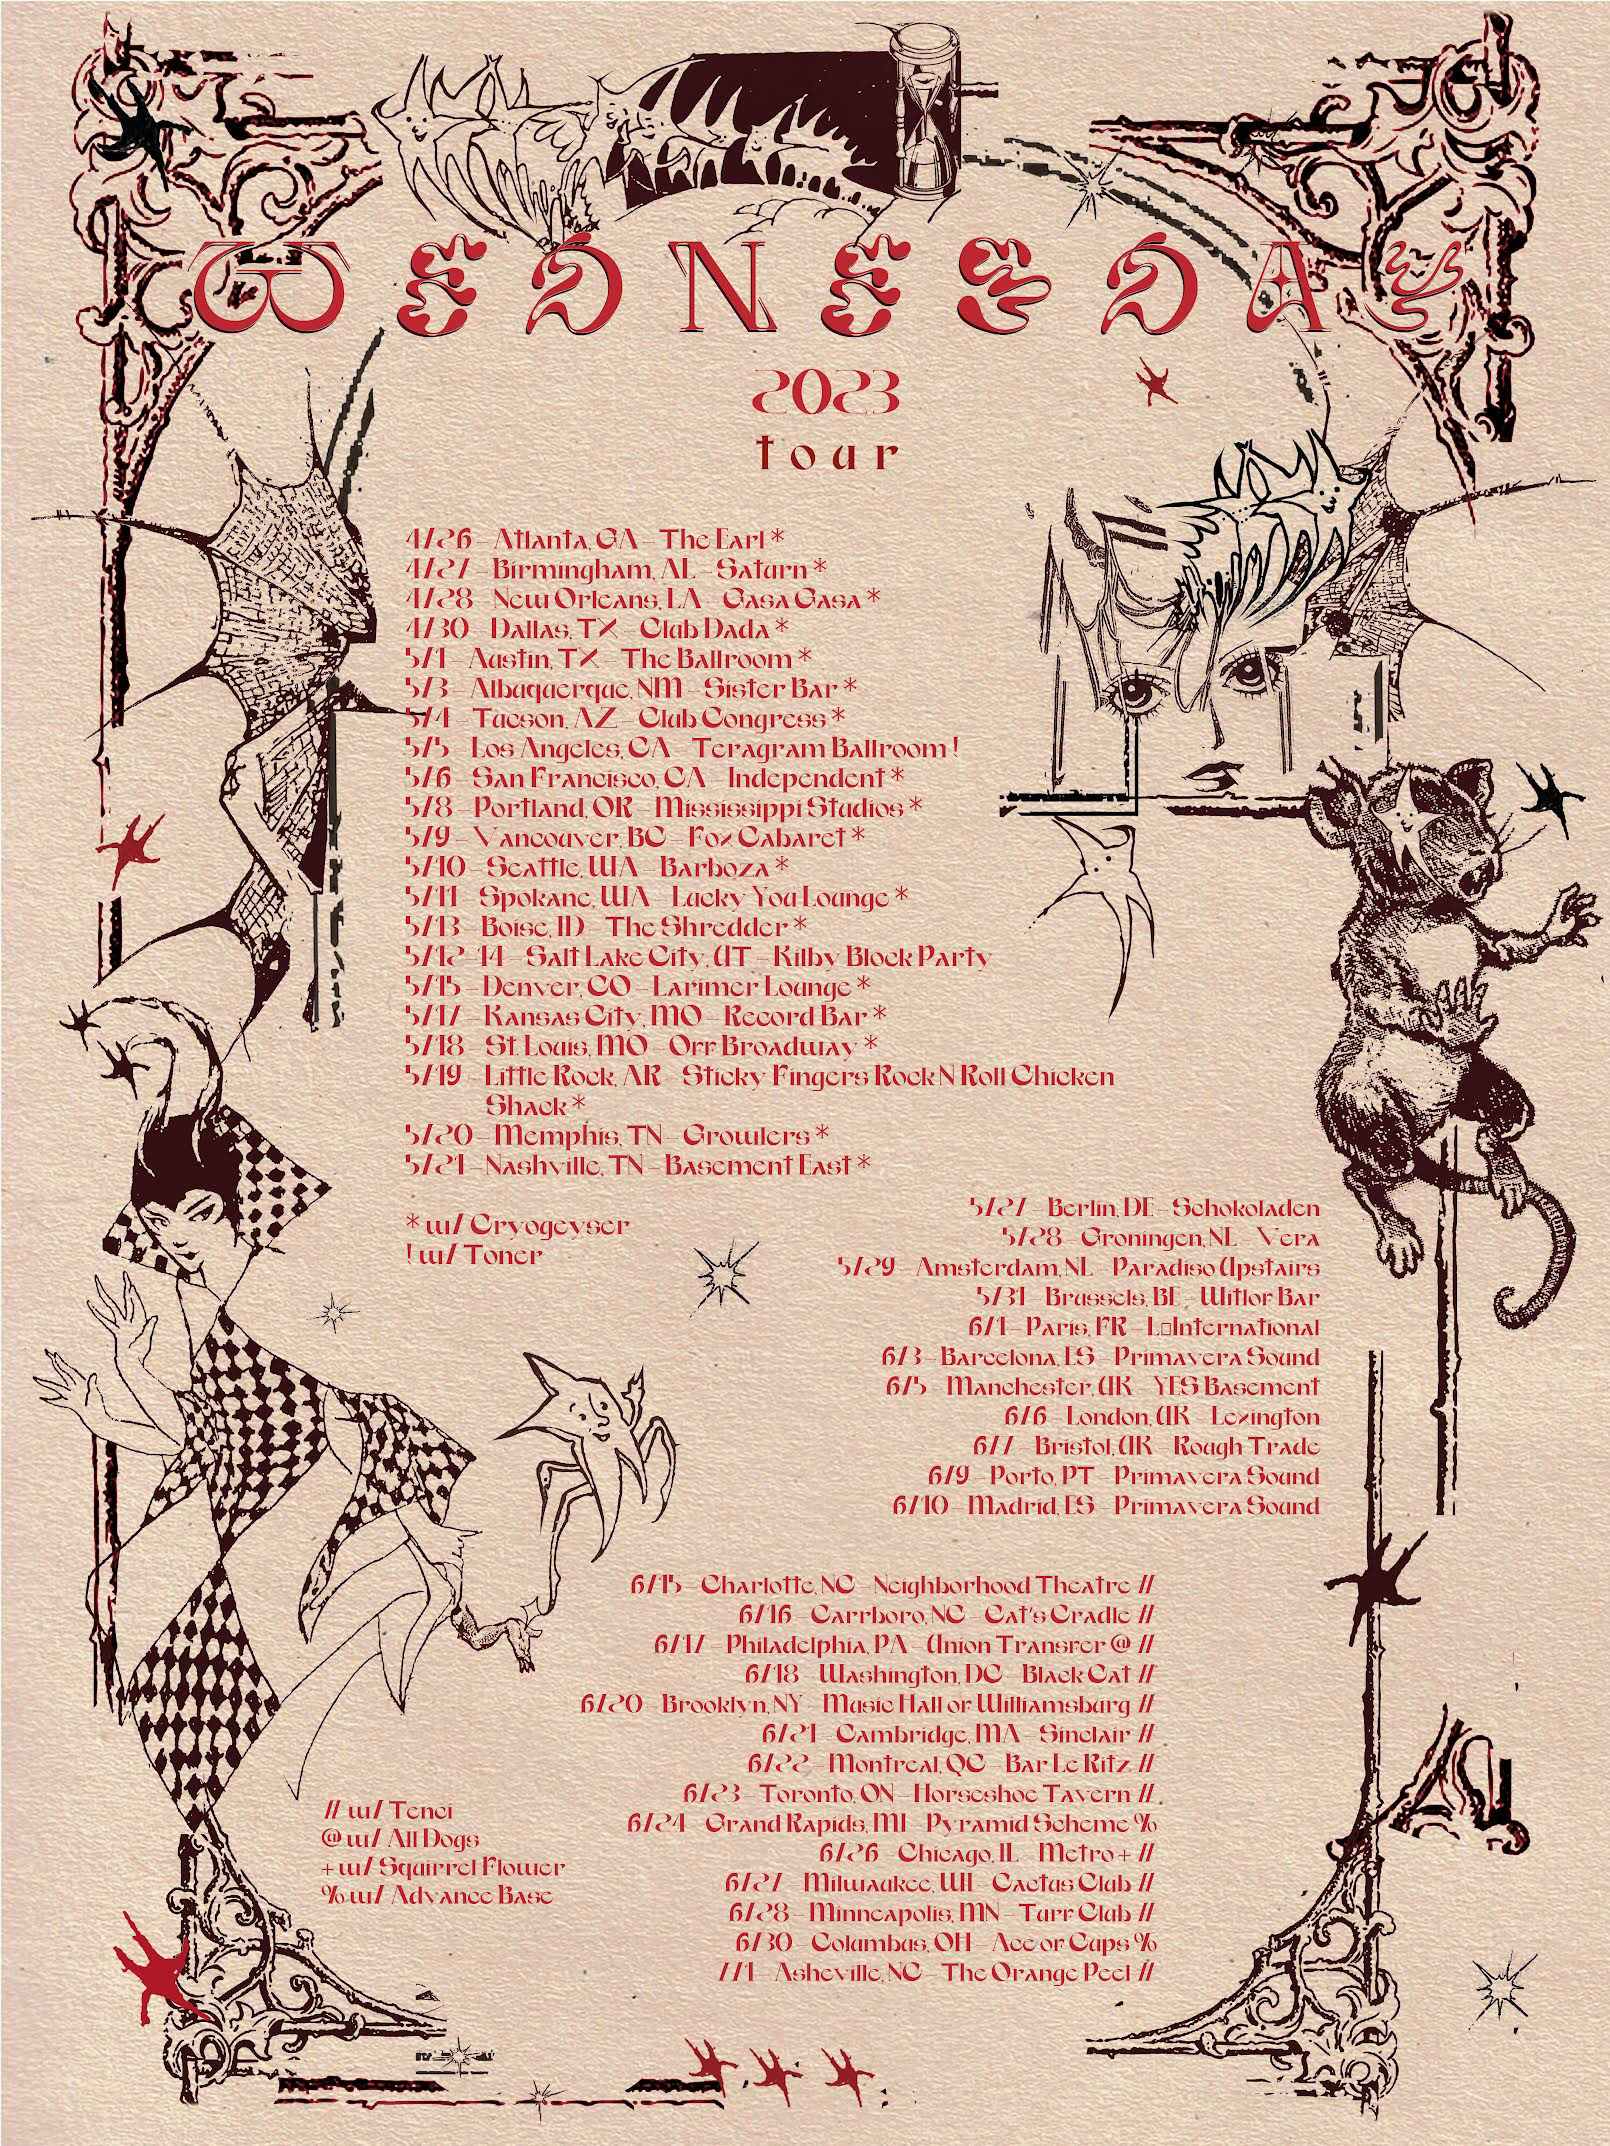 WEDNESDAY
2023
tour
4/26 – Atlanta, GA – The Earl *
4/27 – Birmingham, AL – Saturn *
4/28 – New Orleans, LA – Gasa Gasa *
4/30 – Dallas, TX – Club Dada *
5/1 – Austin, TX – The Ballroom *
5/3 – Albuquerque, NM – Sister Bar *
5/4 – Tucson, AZ – Club Congress *
5/5 – Los Angeles, CA – Teragram Ballroom !
5/6 – San Francisco, CA – Independent *
5/8 – Portland, OR – Mississippi Studios *
5/9 – Vancouver, BC – Fox Cabaret *
5/10 – Seattle, WA – Barboza *
5/11 – Spokane, WA – Lucky You Lounge *
5/13 – Boise, ID – The Shredder *
5/12-14 – Salt Lake City, UT – Kilby Block Party
5/15 – Denver, CO – Larimer Lounge *
5/17 – Kansas City, MO – Record Bar *
5/18 – St. Louis, MO – Off Broadway *
5/19 – Little Rock, AR – Sticky Fingers Rock N Roll Chicken
Shack *
5/20 – Memphis, TN – Growlers *
5/21 – Nashville, TN – Basement East *
* w/ Cryogeyser
! w/ Toner
5/27 – Berlin, DE – Schokoladen
5/28 – Groningen, NL – Vera
5/29 – Amsterdam, NL – Paradiso Upstairs
5/31 – Brussels, BE – Witlof Bar
6/1 – Paris, FR – L□International
6/3 – Barcelona, ES – Primavera Sound
6/5 – Manchester, UK – YES Basement
6/6 – London, UK – Lexington
6/7 – Bristol, UK – Rough Trade
6/9 – Porto, PT – Primavera Sound
6/10 – Madrid, ES – Primavera Sound
6/15 – Charlotte, NC – Neighborhood Theatre //
6/16 – Carrboro, NC – Cat's Cradle //
6/17 – Philadelphia, PA – Union Transfer @ //
6/18 – Washington, DC – Black Cat //
6/20 – Brooklyn, NY – Music Hall of Williamsburg //
6/21 – Cambridge, MA – Sinclair //
6/22 – Montreal, QC – Bar Le Ritz //
6/23 – Toronto, ON – Horseshoe Tavern //
6/24 – Grand Rapids, MI – Pyramid Scheme %
6/26 – Chicago, IL – Metro + //
6/27 – Milwaukee, WI – Cactus Club //
6/28 – Minneapolis, MN – Turf Club //
6/30 – Columbus, OH – Ace of Cups %
7/1 – Asheville, NC – The Orange Peel //
// w/ Tenci
@ w/ All Dogs
+ w/ Squirrel Flower
% w/ Advance Base